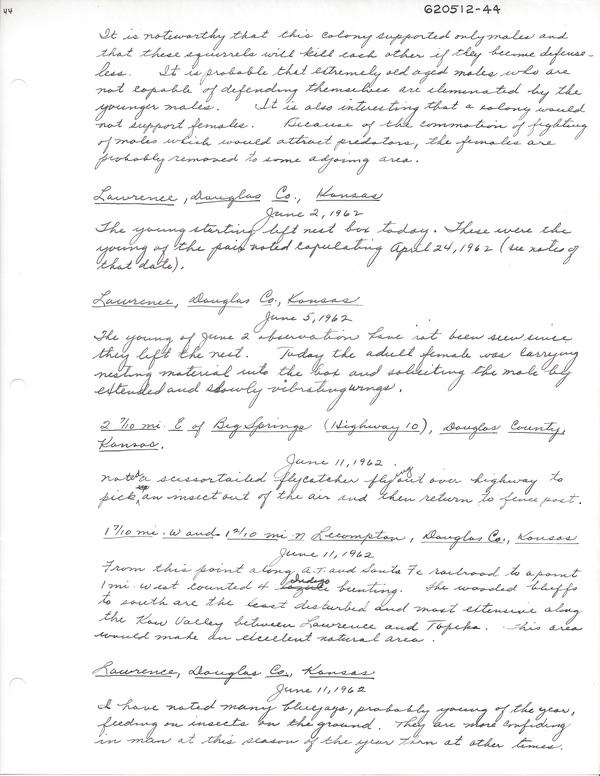 44
620512-44
It is noteworthy that this colony supported only males and
that these squirrels will kill each other if they become defense-
less. It is probable that extremely old aged males who are
not capable of defending themselves are eleminated by the
younger males. It is also interesting that a colony would
not support females. Because of the commotion of fighting
of males which would attract predators, the females are
probably removed to some adjoing area.
Lawrence, Douglas Co., Kansas
June 2, 1962
The young starling left nest box today. These were the
young of the pair noted copulating April 24, 1962 (see notes of
that date).
Lawrence, Douglas Co., Kansas
June 5, 1962
The young of June 2 observation have not been seen since
they left the nest. Today the adult female was carrying
nesting material into the box and soliciting the male by
extended and slowly vibrating wings.
2 7/10 mi. E of Big Springs (Highway 10), Douglas County,
Kansas.
June 11, 1962
noted a scissortailed flycatcher flying out over highway to
pick up an insect out of the air and then return to fence post.
mi. W and mi. N Lecompton, Douglas Co., Kansas
June 11, 1962
From this point along A.T. and Santa Fe railroad to a point
1 mi. west counted 4 Indigo bunting. The wooded bluffs
to south are the least disturbed and most extensive along
the Kaw Valley between Lawrence and Topeka. This area
would make an excellent natural area.
Lawrence, Douglas Co., Kansas
June 11, 1962
I have noted many bluejays, probably young of the year,
feeding on insects on the ground. They are more confiding
in man at this season of the year than at other times.